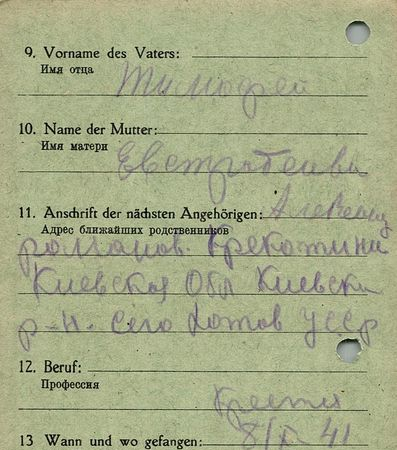 9. Vorname des Vaters:
Имя отца
Тимофей
10. Name der Mutter:
Имя матери
11. Anschrift der nächsten Angehörigen:
Адрес ближайших родственников
Киевская Обл Киевски
р-н. село Хотов УССР
12. Beruf:
Профессия
13 Wann und wo gefangen:
41